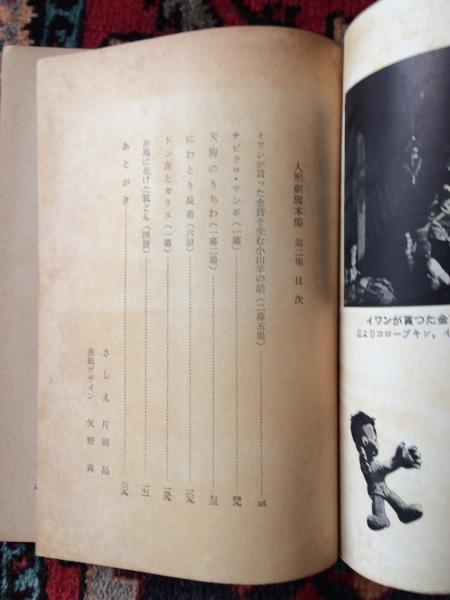 人形劇脚本集 第二集 目次
イワンが貰った金貨を生む小山羊の話（二幕五場）
チビクロ・サンボ（一幕）
天狗のうちわ（一幕二場）
にわとり長者（六景）
トン吉とカラス（一幕）
お馬に化けた狐どん（四景）
あとがき
さしえ 片岡 晶
表紙デザイン 矢野 真
イワンが貰つた金
コローブキン，イ